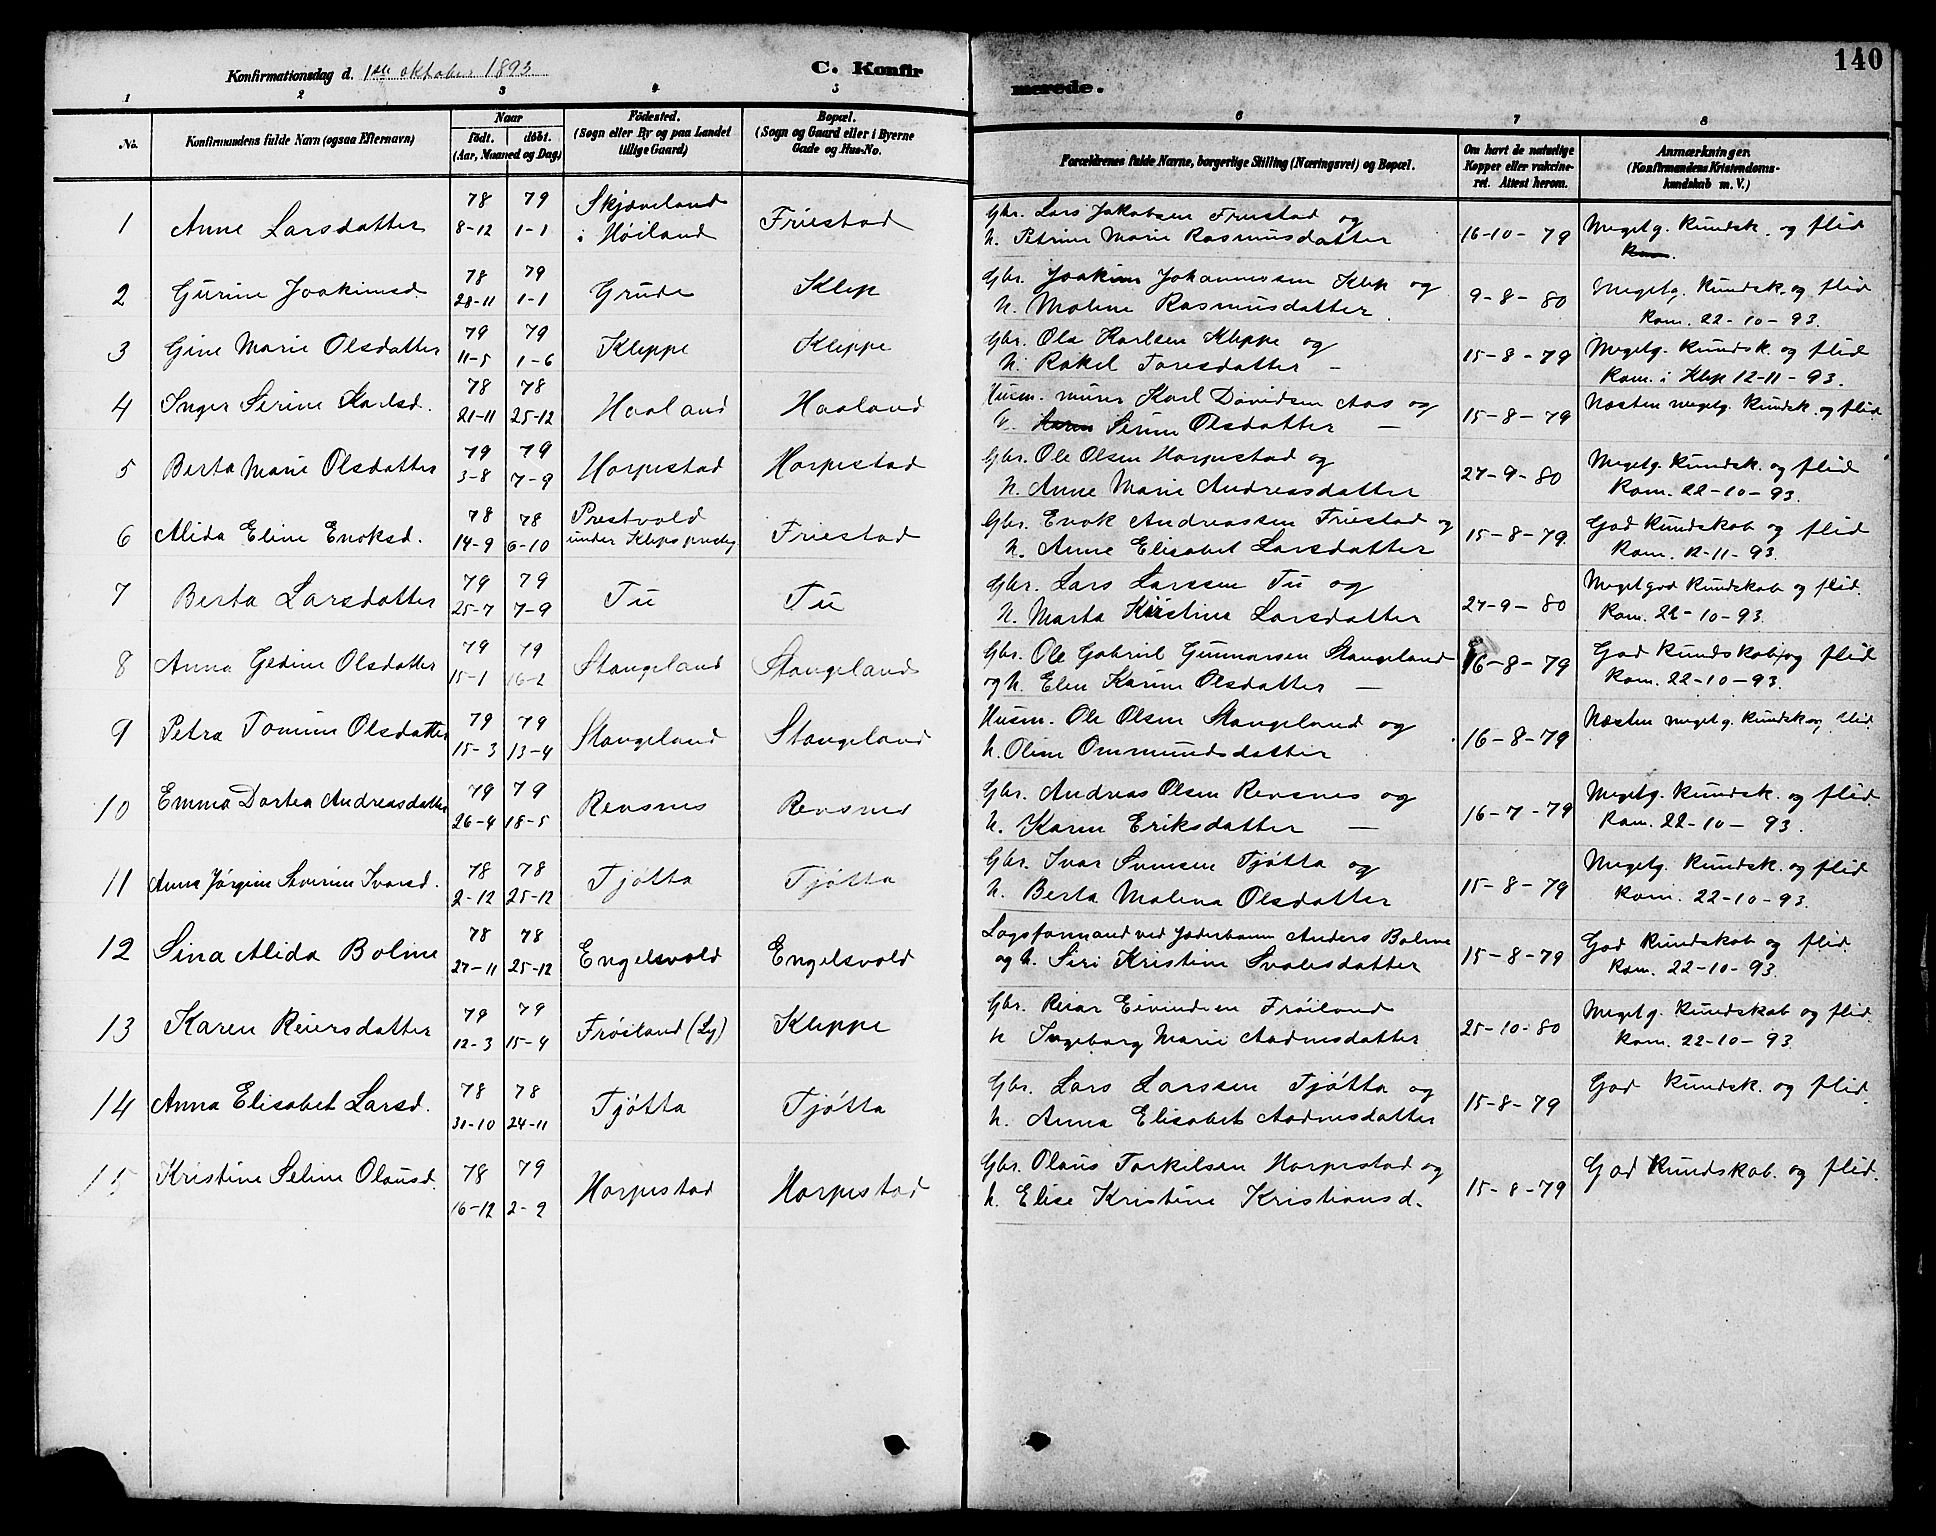 140
Konfirmationsdag d. 1ste oktober 1893
C. Konfirmerede.
1 2 3 4 5 6 7 8
No.
Konfirmandens fulde Navn (ogsaa Efternavn)
Naar
født. døbt.
(Aar, Maaned og Dag)
Fødested.
(Sogn eller By og paa Landet
tillige Gaard)
Bopæl.
(Sogn og Gaard eller i Byerne
Gade og Hus-No.
Forældrenes fulde Navne, borgerlige Stilling (Næringsvei) og Bopæl.
Om havt de naturlige
Kopper eller vakcine-
ret. Attest herom.
Anmærkninger.
(Konfirmandens Kristendoms-
kundskab m. V.)
1 Anne Larsdatter 78 8-12 79 1-1 Skjæveland i Høiland Friestad
Gbr. Lars Jakobsen Friestad og
h. Petrine Marie Rasmusdatter 16-10-79 Meget g. kundsk. og flid
2 Gurine Joakimsd. 78 28-11 79 1-1 Grude Klep
Gbr. Joakim Johannessen Klep og
h. Malene Rasmusdatter 9-8-80 Meget g. kundsk. og flid
Kom. 22-10-93.
3 Gine Marie Olsdatter 79 11-5 79 1-6 Kleppe Kleppe
Gbr. Ola Karlsen Kleppe og
h. Rakel Toresdatter - 15-8-79 Meget g. kundsk. og flid
Kom. i Klep 12-11-93.
4 Inger Serine Karlsd. 78 21-11 78 25-12 Haaland Haaland
Husm. murer Karl Davidsen Aas og
h. Serine Olsdatter - 15-8-79 Næsten meget g. kundsk. og flid
5 Berta Marie Olsdatter 79 3-8 79 7-9 Horpestad Horpestad
Gbr. Ole Olsen Horpestad og
h. Anne Marie Andreasdatter 27-9-80 Meget g. kundsk. og flid
Kom. 22-10-93.
6 Alida Eline Enoksd. 78 14-9 78 6-10 Prestvold under Kleps prestg. Friestad
Gbr. Enok Andreassen Friestad og
h. Anne Elisabet Larsdatter 15-8-79. God kundskab og flid
Kom. 12-11-93.
7 Berta Larsdatter 79 25-7 79 7-9 Tu Tu
Gbr. Lars Larssen Tu og
h. Marta Kristine Larsdatter 27-9-80 Meget god kundskab og flid.
Kom. 22-10-93.
8 Anna Gedine Olsdatter 79 15-1 79 16-2 Stangeland Stangeland
Gbr. Ole Gabriel Gunnarsen Stangeland
og h. Elen Karine Olsdatter - 16-8-79 God kundskab og flid
Kom. 22-10-93.
9 Petra Tomine Olsdatter 79 15-3 79 13-4 Stangeland Stangeland
Husm. Ole Olsen Stangeland og
h. Oline Ommundsdatter 16-8-79 Næsten meget g. kundsk og flid.
10 Emma Dortea Andreasdatter 79 26-4 79 18-5 Revsnes Revsnes
Gbr. Andreas Olsen Revsnes og
h. Karen Eriksdatter - 16-7-79 Meget g. kundsk. og flid
Kom. 22-10-93.
11 Anne Jørgine Severine Ivarsd. 78 2-12 78 25-12 Tjøtta Tjøtta
Gbr. Ivar Svensen Tjøtta og
h. Berta Malena Olsdatter 15-8-79 Meget g. kundsk. og flid
Kom. 22-10-93.
12 Sina Alida Bolme 78 27-11 78 25-12 Engelsvold Engelsvold
Lagsformand ved Jæderbanen Anders Bolme
og h. Siri Kristine Svalesdatter 15-8-79 God kundskab og flid.
Kom. 22-10-93.
13 Karen Reiersdatter 79 12-3 79 15-4 Frøiland (Ly) Kleppe
Gbr. Reiar Eivindsen Frøiland
h Ingeborg Marie Aadnesdatter 25-10-80 Meget g. kundskab og flid.
Kom. 22-10-93.
14 Anna Elisabet Larsd. 78 31-10 78 24-11 Tjøtta Tjøtta
Gbr. Lars Larssen Tjøtta og
h. Anna Elisabet Aadnesdatter 15-8-79 God kundsk. og flid.
15 Kristine Seline Olausd. 78 16-12 79 2-2 Horpestad Horpestad
Gbr. Olaus Torkilsen Horpestad og
h. Elise Kristine Kristiansd. 15-8-79 God kundskab. og flid.